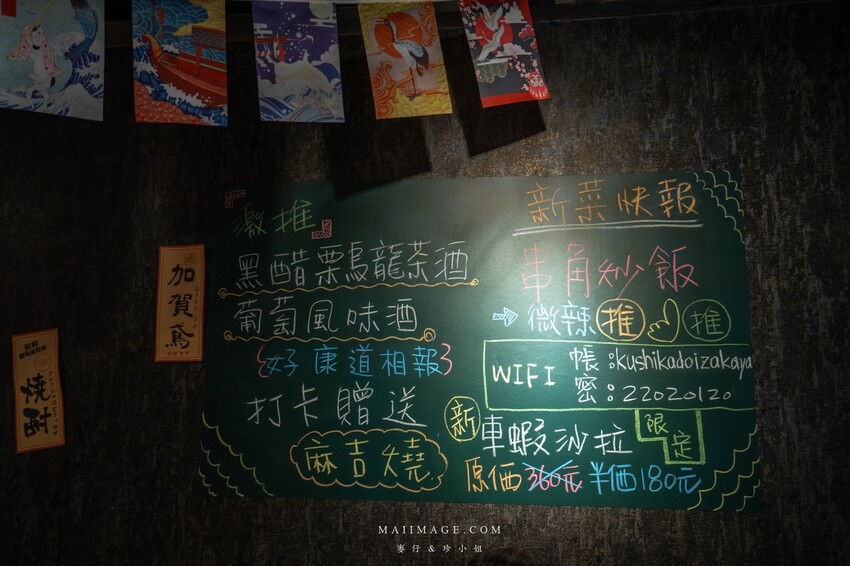 「激推」
黑醋栗烏龍茶酒
葡萄風味酒
好康道相報
打卡贈送
麻吉燒
新菜快報
串角炒飯
微辣 推 推
WIFI
帳:kushikadoizakaya
密:22020120
新 車蝦沙拉 限定
原価 360元 半価180元
加賀鳶
焼酎
MAIIMAGE.COM
麥仔&珍小姐